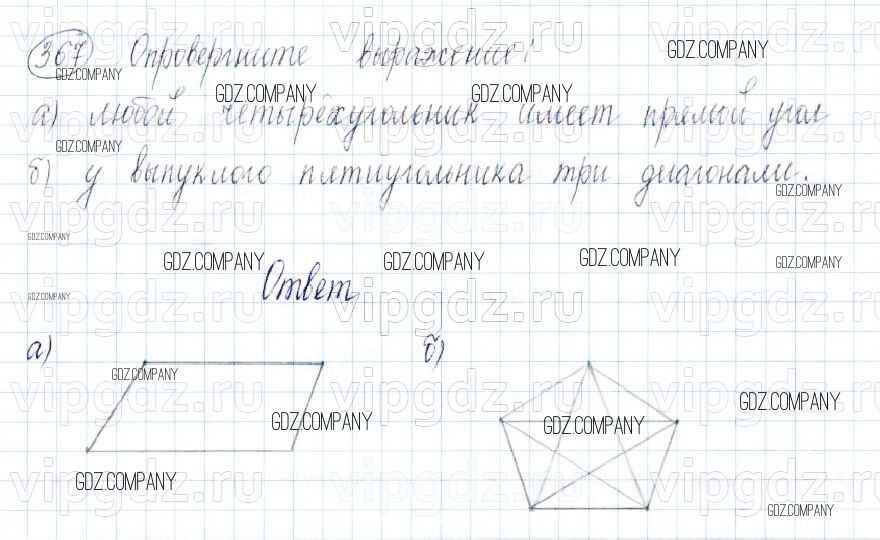 367 Опровергните выражение:
а) любой четырёхугольник имеет прямой угол
б) у выпуклого пятиугольника три диагонали.
Ответ
а) б)
GDZ.COMPANY
vipgdz.ru